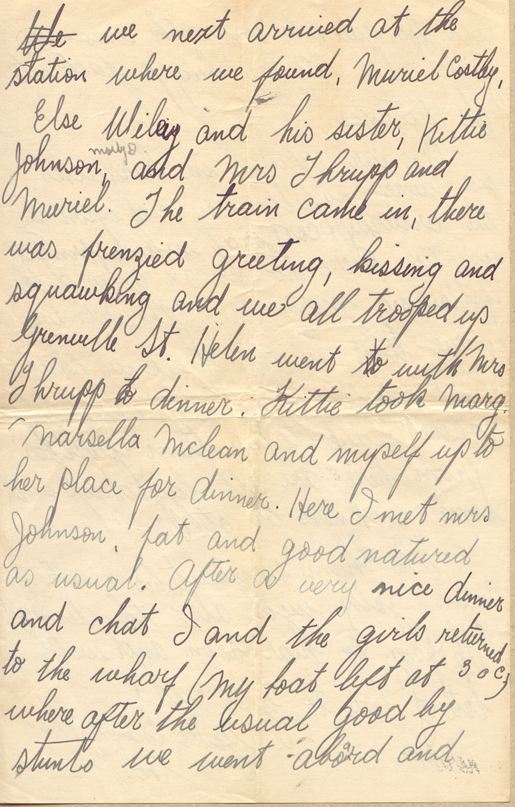 we next arrived at the
station where we found, Muriel Costly,
Else Wilby and his sister, Kittie
Johnson, and Mrs Thrupp and
Muriel. The train came in, there
was frenzied greeting, kissing and
squawking and we all trooped up
Grenville St. Helen went to with Mrs
Thrupp to dinner. Kittie took Marg.
Marsella Mclean and myself up to
her place for dinner. Here I met mrs
Johnson, fat and good natured
as usual. After a very nice dinner
and chat I and the girls returned
to the wharf (my boat left at 3 oc)
where after the usual good by
stunts we went abord and